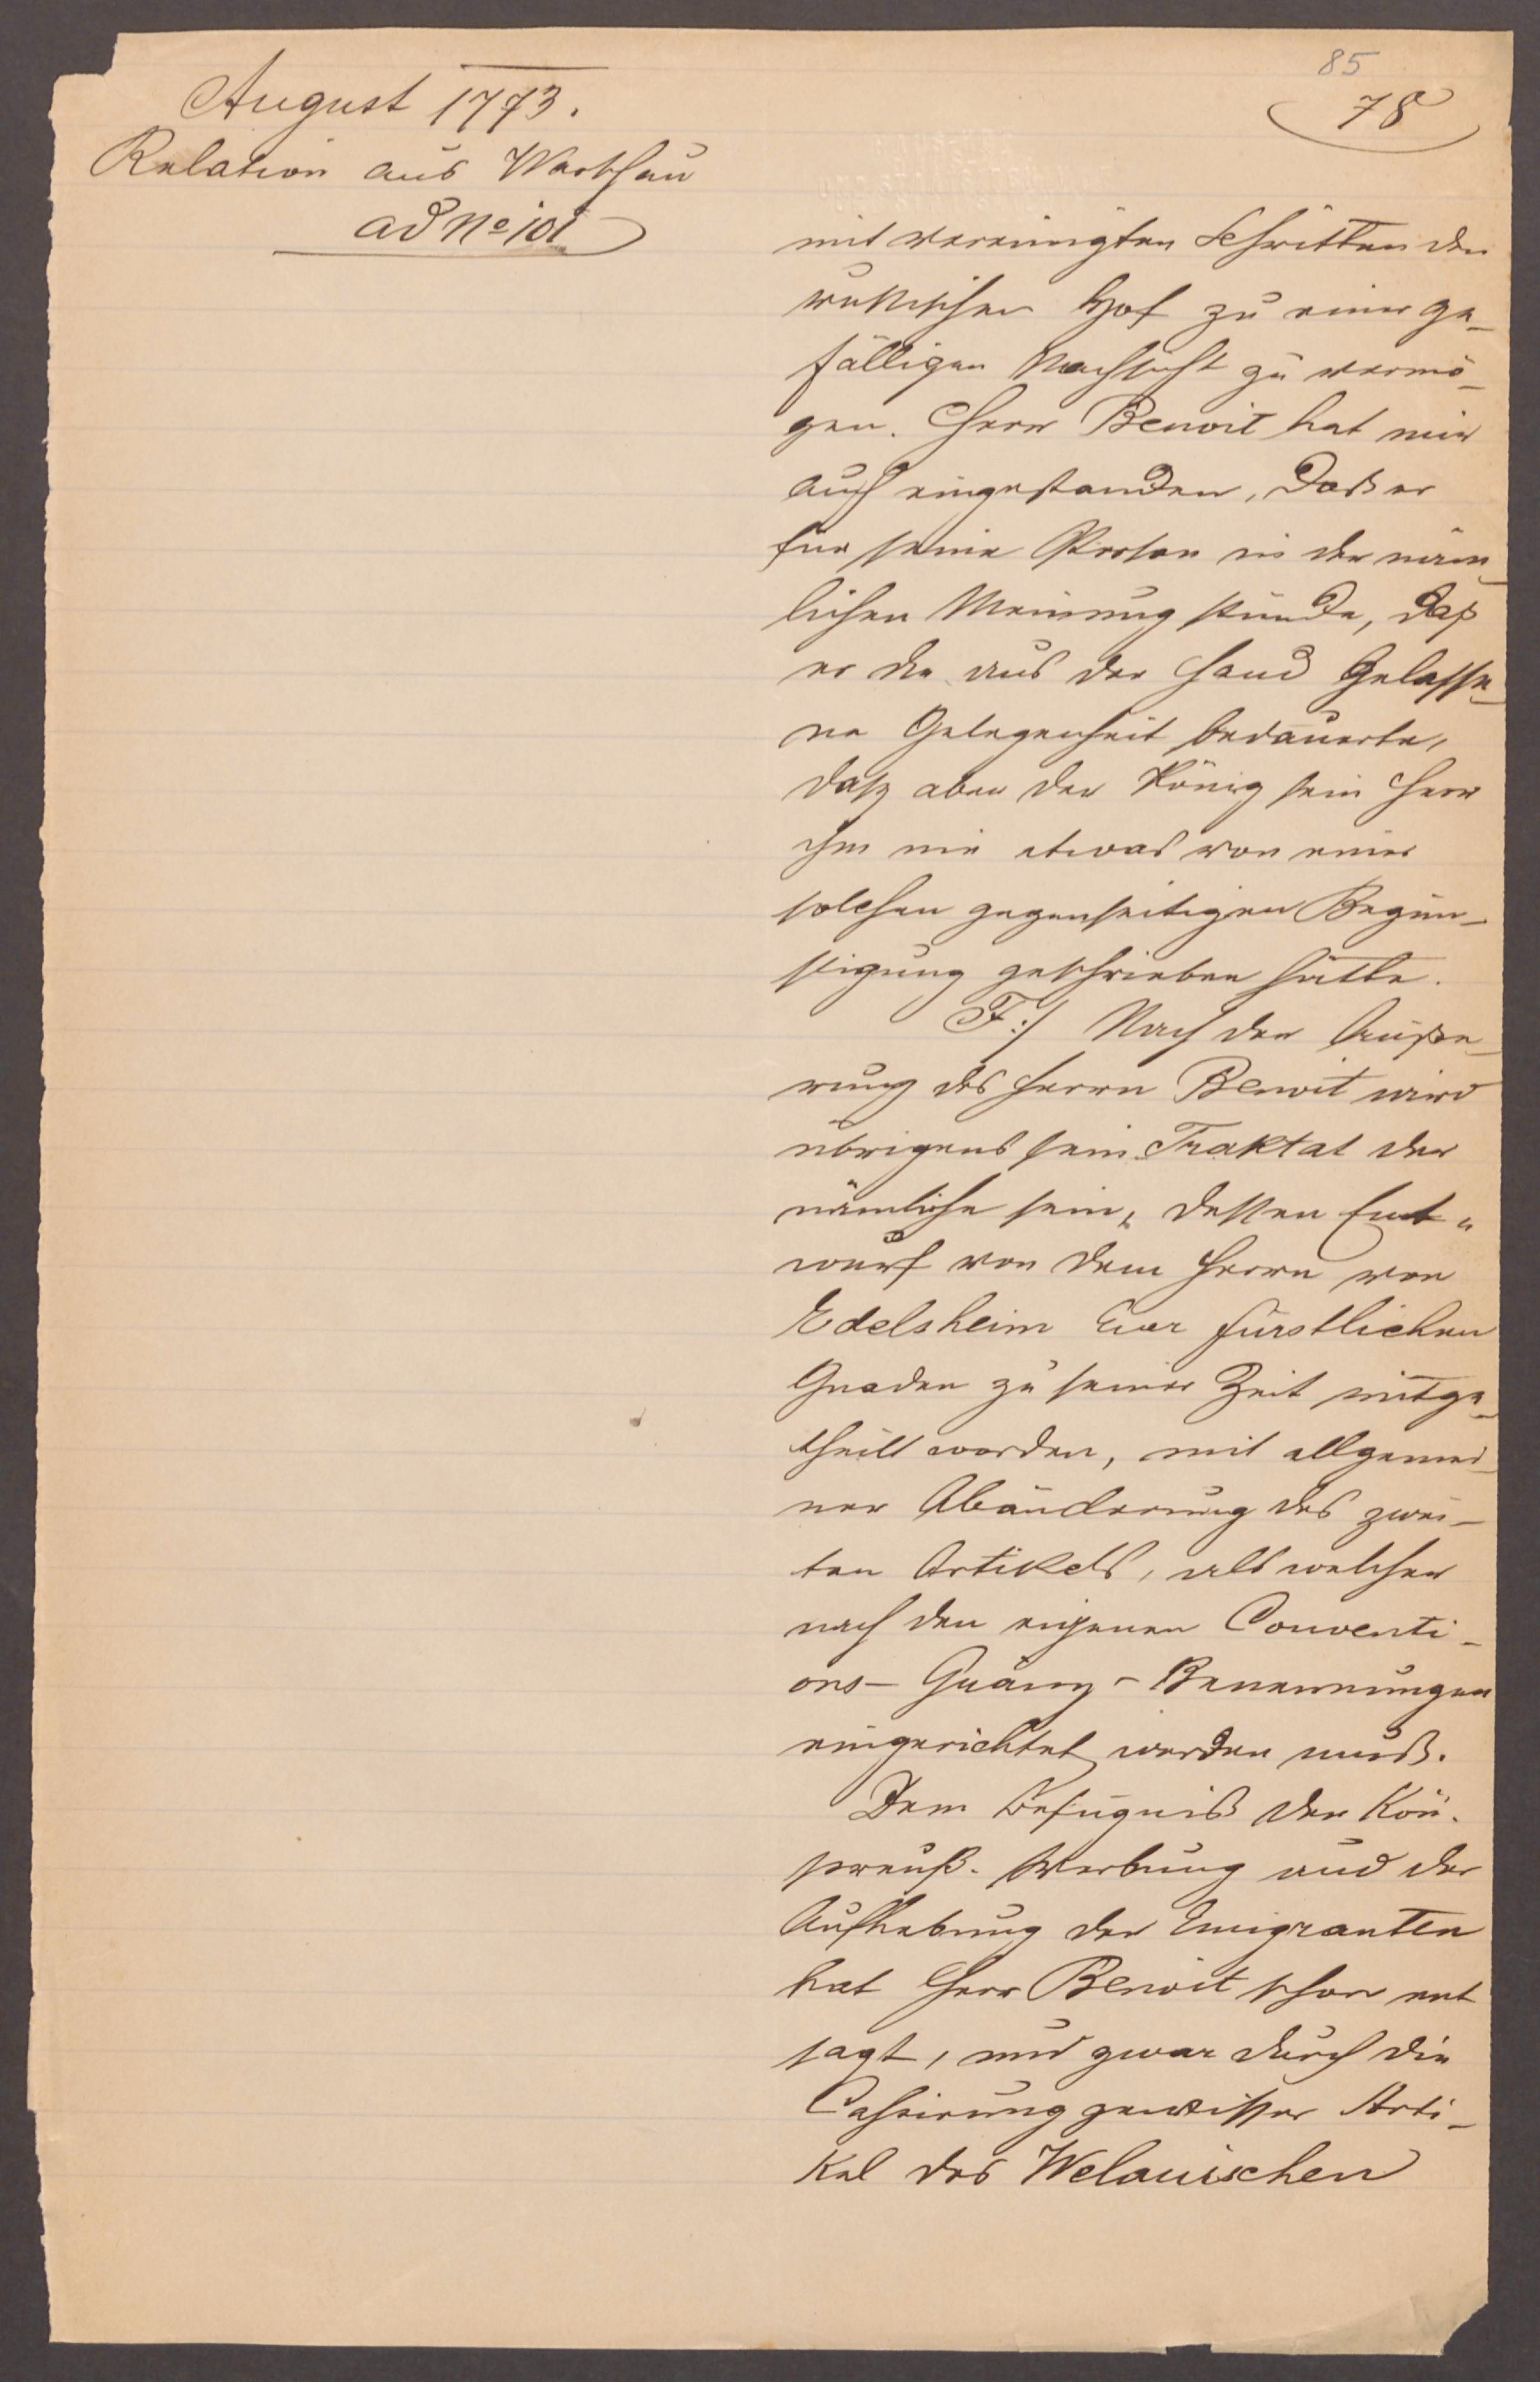 85
78
August 1773.
Relation aus Warschau
ad No 101
mit vereinigten Schritten den
russischen Hof zu einer ge-
fälligen Nachsicht zu vermö-
gen. Herr Benoit hat mir
auch eingestanden, daß er
für seine Person in der näm-
lichen Meinung stünde, daß
er die aus der Hand Gelasse-
ne Gelegenheit bedauerte,
daß aber der König sein Herr
ihm nie etwas von einer
solchen gegenseitigen Begün-
stigung geschrieben hätte.
F:/ Nach der Äuße-
rung des Herrn Benoit wird
übrigens sein Traktat der
nämliche sein, dessen Ent-
wurf von dem Herrn von
Edelsheim Euer fürstlichen
Gnaden zu seiner Zeit mitge-
theilt worden, mit allgemei-
ner Abänderung des zwei-
ten Artikels, als welcher
nach den eigenen Conventi-
ons- Gränz- Benennungen
eingerichtet werden muß.
Dem Befugniß der Kön.
preuß. Werbung und der
Aufhebung der Emigranten
hat Herr Benoit schon ent
sagt, und zwar durch die
Cassirung gewisser Arti-
kel des Welauischen